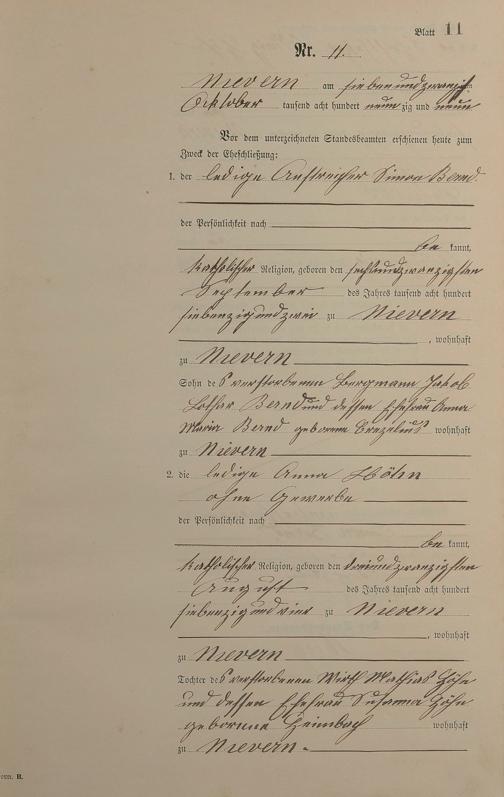 Blatt 11
Nr. 11.
Nievern am siebenundzwanzigsten
Oktober tausend acht hundert neunzig und neun
Vor dem unterzeichneten Standesbeamten erschienen heute zum
Zweck der Eheschließung:
1. der ledige Anstreicher Simon Bernd
der Persönlichkeit nach
be kannt,
katholischer Religion, geboren den sechsundzwanzigsten
September des Jahres tausend acht hundert
siebenzig und zwei zu Nievern
, wohnhaft
zu Nievern
Sohn des verstorbenen Bergmann Jakob
Lothar Bernd und dessen Ehefrau Anna
Maria Bernd geborene wohnhaft
zu Nievern
2. die ledige Anna Höhn
ohne Gewerbe
der Persönlichkeit nach
be kannt,
katholischer Religion, geboren den dreiundzwanzigsten
August des Jahres tausend acht hundert
siebenzig und vier zu Nievern
, wohnhaft
zu Nievern
Tochter des verstorbenen Wirth Mathias Höhn
und dessen Ehefrau Susanna Höhn
geborene Heimbach wohnhaft
zu Nievern